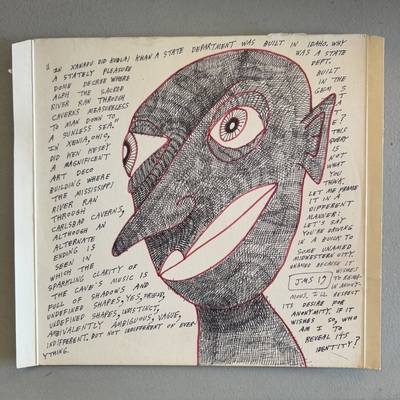 "IN XANADU DID KUBLAI KHAN A STATE DEPARTMENT WAS BUILT IN IDAHO. WHY
A STATELY PLEASURE
DOME DECREE WHERE
ALPH THE SACRED
RIVER RAN THROUGH
CAVERNS MEASURELESS
TO MAN DOWN TO
A SUNLESS SEA."
IN XENIA, OHIO,
DID KEN KESEY
A MAGNIFICENT
ART DECO
BUILDING WHERE
THE MISSISSIPPI
RIVER RAN
THROUGH
CARLSBAD CAVERNS,
ALTHOUGH AN
ALTERNATE
ENDING IS
SEEN IN
WHICH THE
SPARKLING CLARITY OF
THE CAVE'S MUSIC IS
FULL OF SHADOWS AND
UNDEFINED SHAPES, YES, FRIEND,
UNDEFINED SHAPES, INDISTINCT,
AMBIVALENTLY AMBIGUOUS, VAGUE,
INDIFFERENT, BUT NOT INDIFFERENT OF EVER-
YTHING.
WAS A STATE
DEPT.
BUILT
IN THE
GEM
STATE?
THIS
QUERY
IS
NOT
WHAT
YOU
THINK.
LET ME PHRASE
IT IN A
DIFFERENT
MANNER:
LET'S SAY
YOU'RE DRIVING
IN A BUICK TO
SOME UNNAMED
MIDWESTERN CITY.
UNNAMED BECAUSE IT
WISHES
TO REMAIN
IN ANONY-
MOUS, I'LL RESPECT
ITS DESIRE FOR
ANONYMITY. IF IT
WISHES SO, WHO
AM I TO
REVEAL ITS
IDENTITY?
JMS 19